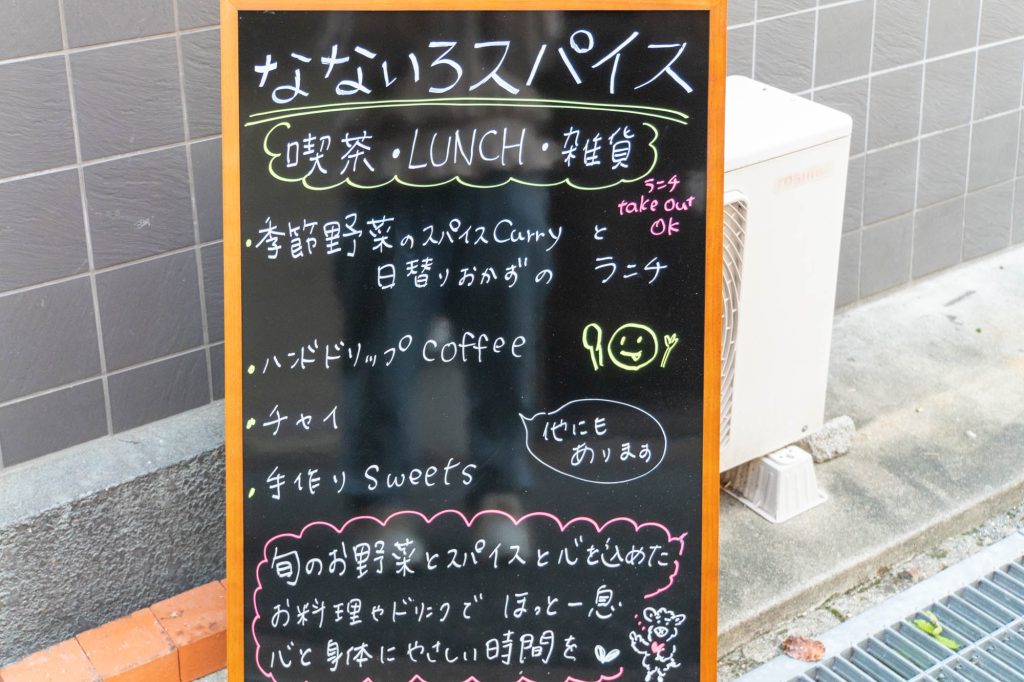 なないろスパイス
喫茶・LUNCH・雑貨
ランチ
take out
OK
・季節野菜のスパイスCurry と
日替りおかずの ランチ
・ハンドドリップ coffee
・チャイ
他にも
あります
・手作り Sweets
旬のお野菜とスパイスと心を込めた
お料理やドリンクで ほっと一息
心と身体にやさしい時間を
TOSHIBA